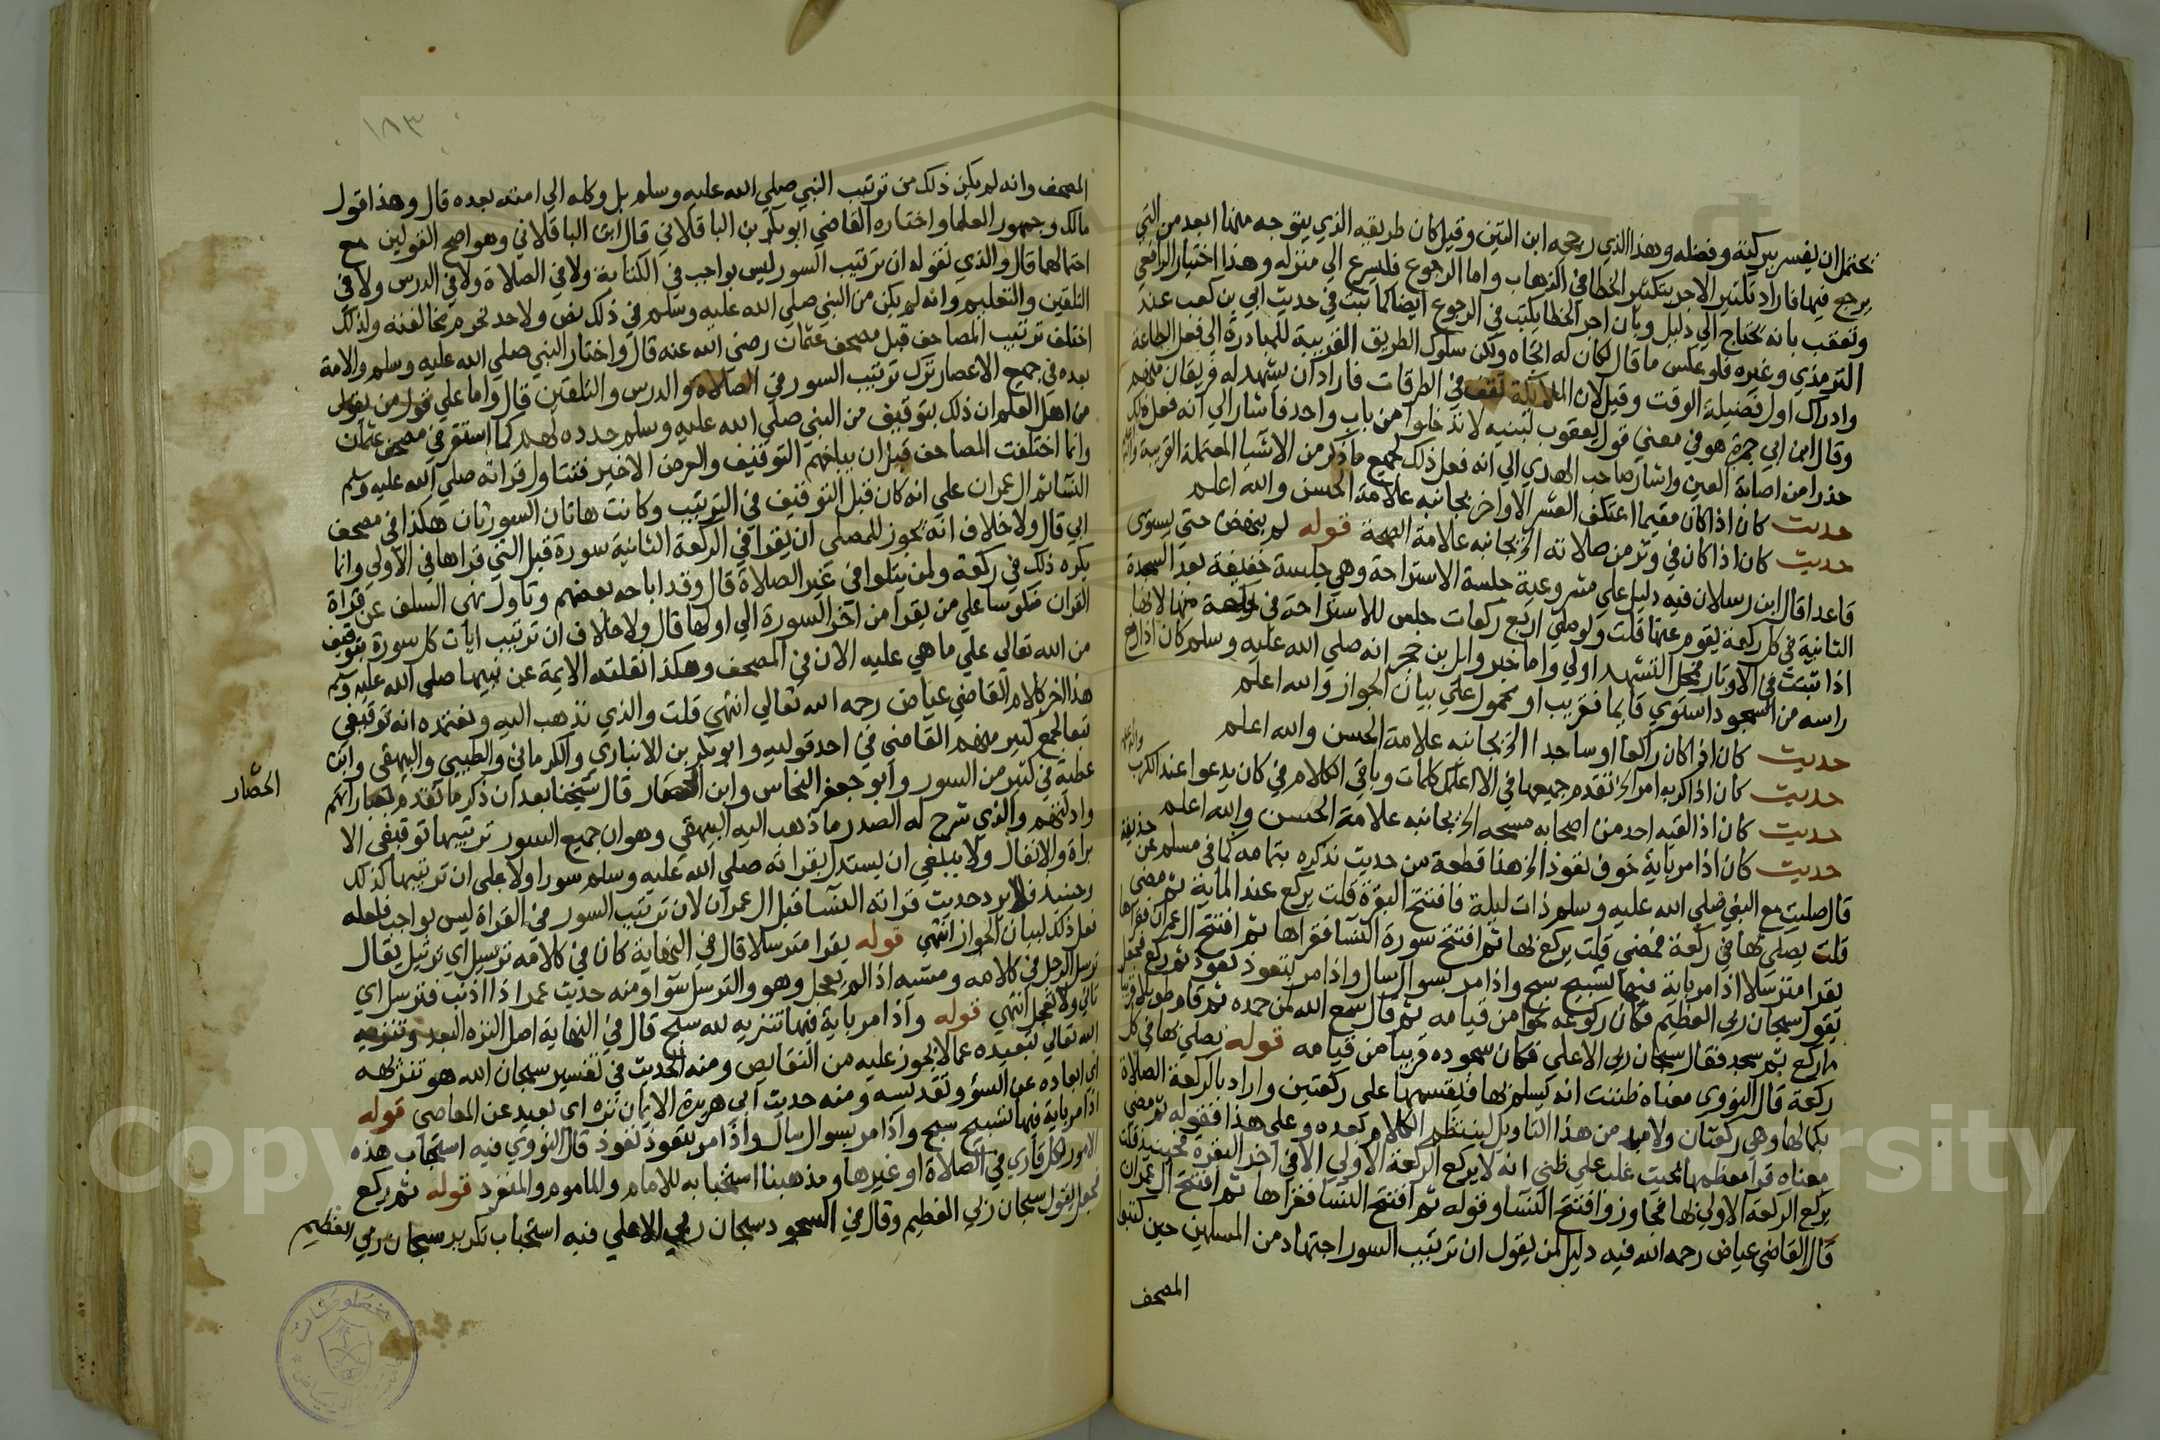 يحتمل ان يفسر ببركته وفضله وهذا الذي رجحه ابن التين وقيل كان طريقه الذي يتوجه منها ابعد من التي
يرجع فيها فاراد تكثير الاجر بتكثير الخطا في الذهاب واما الرجوع فليسرع الي منزله وهذا اختيار الرافعي
وتعقب بانه يحتاج الي دليل وبان اجر الخطا يكتب في الرجوع ايضا كما ثبت في حديث ابي بن كعب عند
الترمذي وغيره فلو عكس ما قال لكان له اتجاه ويكن سلوك الطريق القريبة للمبادرة الي فعل الطاعة
وادراك اول فضيلة الوقت وقيل لان الملايكة تقف في الطرقات فاراد ان يشهد له فريقان منهم
وقال ابن ابي جمرة هو في معني قول يعقوب لبنيه لا تدخلوا من باب واحد فاشار الي انه فعل ذلك
حذرا من اصابة العين واشار صاحب الهدي الي انه فعل ذلك لجميع ما ذكر من الاشيا المحتملة القريبة والله
حديث كان اذا كان مقيما اعتكف العشر الاواخر بجانبه علامة الحسن والله اعلم
حديث كان اذا كان في وتر من صلاته الخ بجانبه علامة الصحة قوله لم ينهض حتي يستوي
قاعدا قال ابن رسلان فيه دليل علي مشروعية جلسة الاستراحة وهي جلسة خفيفة بعد السجدة
الثانية في كل ركعة يقوم عنها قلت ولو صلي اربع ركعات جلس للاستراحة في كل منها لانها
اذا ثبتت في الاوتار فمحل التشهد اولي واما خبر وايل بن حجر انه صلي الله عليه وسلم كان اذا رفع
راسه من السجود استوي قايما فغريب او محمول علي بيان الجواز والله اعلم
حديث كان اذا كان راكعا او ساجدا الخ بجانبه علامة الحسن والله اعلم
حديث كان اذا كربه امر الخ تقدم جميعها في الا اعلمك كلمات وباقي الكلام في كان يدعوا عند الكرب
حديث كان اذا لقيه احد من اصحابه مسحه الخ بجانبه علامة الحسن والله اعلم
حديث كان اذا مر باية خوف تعوذ الخ هذا قطعة من حديث نذكره بتمامه كما في مسلم عن حذيفة
قال صليت مع النبي صلي الله عليه وسلم ذات ليلة فافتتح البقرة قلت يركع عند الماية ثم مضي
قلت يصلي بها في ركعة فمضي قلت يركع بها ثم افتتح سورة النسا فقراها ثم افتتح ال عمران فقراها
يقرا مترسلا اذا مر باية فيها تسبيح سبح واذا مر بسوال سال واذا مر بتعوذ تعوذ ثم ركع فجعل
يقول سبحان ربي العظيم فكان ركوعه نحوا من قيامه ثم قال سمع الله لمن حمده ثم قام طويلا قريبا
ما ركع ثم سجد فقال سبحان ربي الاعلي فكان سجوده قريبا من قيامه قوله يصلي بها في كل
ركعة قال النووي معناه ظننت انه يسلم بها فيقسمها علي ركعتين واراد بالركعة الصلاة
بكمالها وهي ركعتان ولا بد من هذا التاويل لينتظم الكلام بعده وعلي هذا فقوله ثم مضي
معناه قرا معظمها بحيث غلب علي ظني انه لا يركع الركعة الاولي الا في اخر البقرة فحينيذ قلت
يركع الركعة الاولي بها فجاوز وافتتح النسا وقوله ثم افتتح النسا فقراها ثم افتتح ال عمران
قال القاضي عياض رحمه الله فيه دليل لمن يقول ان ترتيب السور اجتهاد من المسلمين حين كتبوا
المصحف
١٨٣
المصحف وانه لم يكن ذلك من ترتيب النبي صلي الله عليه وسلم بل وكله الي امته بعده قال وهذا قول
مالك وجمهور العلما واختاره القاضي ابو بكر بن الباقلاني قال ابن الباقلاني وهو اصح القولين مع
احتمالهما قال والذي نقوله ان ترتيب السور ليس بواجب في الكتابة ولا في الصلاة ولا في الدرس ولا في
التلقين والتعليم وانه لم يكن من النبي صلي الله عليه وسلم في ذلك نص ولا حد تحرم مخالفته ولذلك
اختلف ترتيب المصاحف قبل مصحف عثمان رضي الله عنه قال واختار النبي صلي الله عليه وسلم والامة
بعده في جميع الاعصار ترك ترتيب السور في الصلاة والدرس والتلقين قال واما علي قول من يقول
من اهل العلم ان ذلك بتوقيف من النبي صلي الله عليه وسلم حدده لهم كما استقر في مصحف عثمان
وانما اختلفت المصاحف قبل ان يبلغهم التوقيف والعرض الاخير فتتاول قراته صلي الله عليه وسلم
النسا ثم ال عمران علي انه كان قبل التوقيف في الترتيب وكانت هاتان السورتان هكذا في مصحف
ابي قال ولا خلاف انه يجوز للمصلي ان يقرا في الركعة الثانية سورة قبل التي قراها في الاولي وانما
يكره ذلك في ركعة ولمن يتلوا في غير الصلاة قال وقد اباحه بعضهم وتاول نهي السلف عن قراة
القران منكوسا علي من يقرا من اخر السورة الي اولها قال ولا خلاف ان ترتيب ايات كل سورة بتوقيف
من الله تعالي علي ما هي عليه الان في المصحف وهكذا نقلته الايمة عن نبيها صلي الله عليه وسلم
هذا اخر كلام القاضي عياض رحمه الله تعالي انتهي قلت والذي نذهب اليه ونعتمده انه توقيفي
تبعا لجمع كبير منهم القاضي في احد قوليه وابو بكر بن الانباري والكرماني والطيبي والبيهقي وابن
عطية في كثير من السور وابو جعفر النحاس وابن الحصار قال شيخنا بعد ان ذكر ما تقدم بعباراتهم
الحصّار
وادلتهم والذي شرح له الصدر ما ذهب اليه البيهقي وهو ان جميع السور ترتيبها توقيفي الا
براة والانفال ولا ينبغي ان يستدل بقراته صلي الله عليه وسلم سورا ولا علي ان ترتيبها كذلك
وحينيذ فلا يرد حديث قراته النسا قبل ال عمران لان ترتيب السور في القراة ليس بواجب فلعله
فعل ذلك لبيان الجواز انتهي قوله يقرا مترسلا قال في النهاية كان في كلامه ترسيل اي ترتيل يقال
ترسل الرجل في كلامه ومشيه اذا لم يعجل وهو والترسل سوا ومنه حديث عمر اذا اذنت فترسل اي
تاني ولا تعجل انتهي قوله واذا مر باية فيها تنزيه لله سبح قال في النهاية اصل النزه البعد وتنزيه
الله تعالي تبعيده عما لا يجوز عليه من النقايص ومنه الحديث في تفسير سبحان الله هو تنزيهه
اي ابعاده عن السؤ وتقديسه ومنه حديث ابي هريرة الايمان نزه اي بعيد عن المعاصي قوله
اذا مر باية فيها تسبيح سبح واذا مر بسوال سال واذا مر بتعوذ تعوذ قال النووي فيه استحباب هذه
الامور لكل قاري في الصلاة او غيرها ومذهبنا استحبابه للامام والماموم والمنفرد قوله ثم ركع
فجعل يقول سبحان ربي العظيم وقال في السجود سبحان ربي الاعلي فيه استحباب تكرير سبحان ربي العظيم